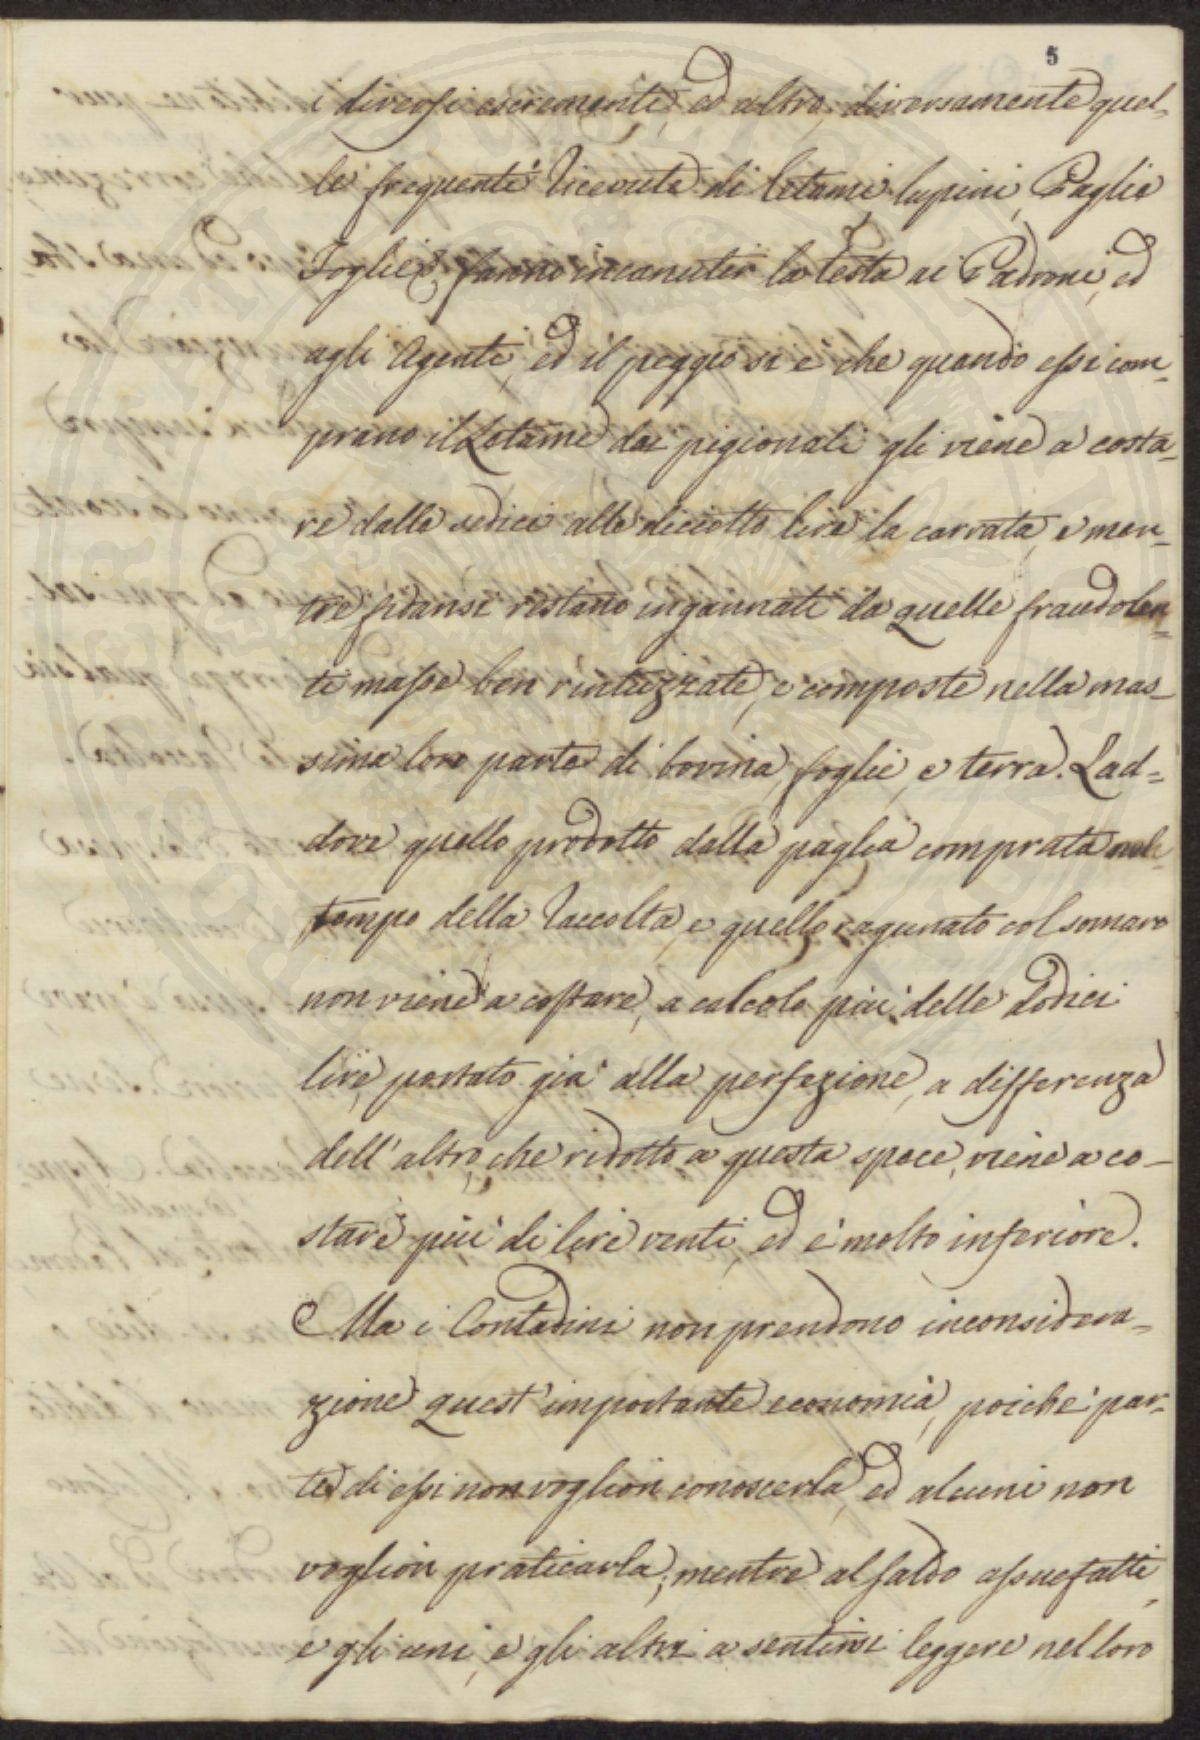 5
i diversi escrementi, ed altro, diversamente quel-
le frequenti Ricevute di letami lupini, Paglie
Foglie &c fanno incanutir la testa ai Padroni, ed
agli Agenti, ed il peggio si è che quando essi com-
prano il Letame dai pigionali gli viene a costa-
re dalle sedici alle diciotto lire la carrata, e men-
tre fidansi restano ingannati da quelle fraudolen-
ti masse ben rintuzzate, e composte nella mas-
sima loro parte di bovina, foglie, e terra. Lad-
dove quello prodotto dalla paglia comprata nel
tempo della Raccolta, e quello ragunato col somaro
non viene a costare, a calcolo più delle dodici
lire, portato già alla perfezione, a differenza
dell'altro, che ridotto a questa spece, viene a co-
stare più di lire venti, ed è molto inferiore.
Ma i Contadini non prendono inconsidera-
zione quest'importante economia, poichè par-
te di essi non voglion conoscerla, ed alcuni non
voglion praticarla; mentre al saldo assuefatti,
e gli uni, e gli altri a sentirsi leggere nel loro